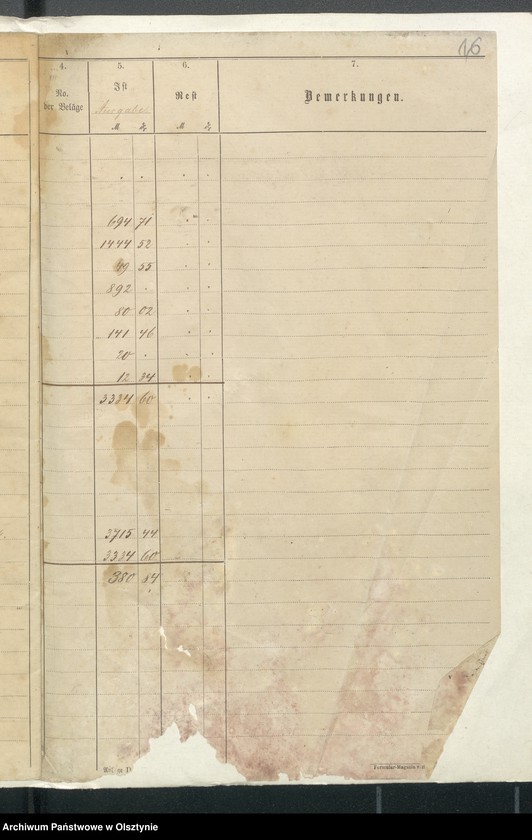 16
4. 5. 6. 7.
No. der Beläge Ist Ausgabe Rest Bemerkungen.
M ₰ M ₰
694 71
1444 52
49 55
892 .
80 02
141 46
20 .
12 34
3334 60
3715 44
3334 60
380 84
Archiwum Państwowe w Olsztynie